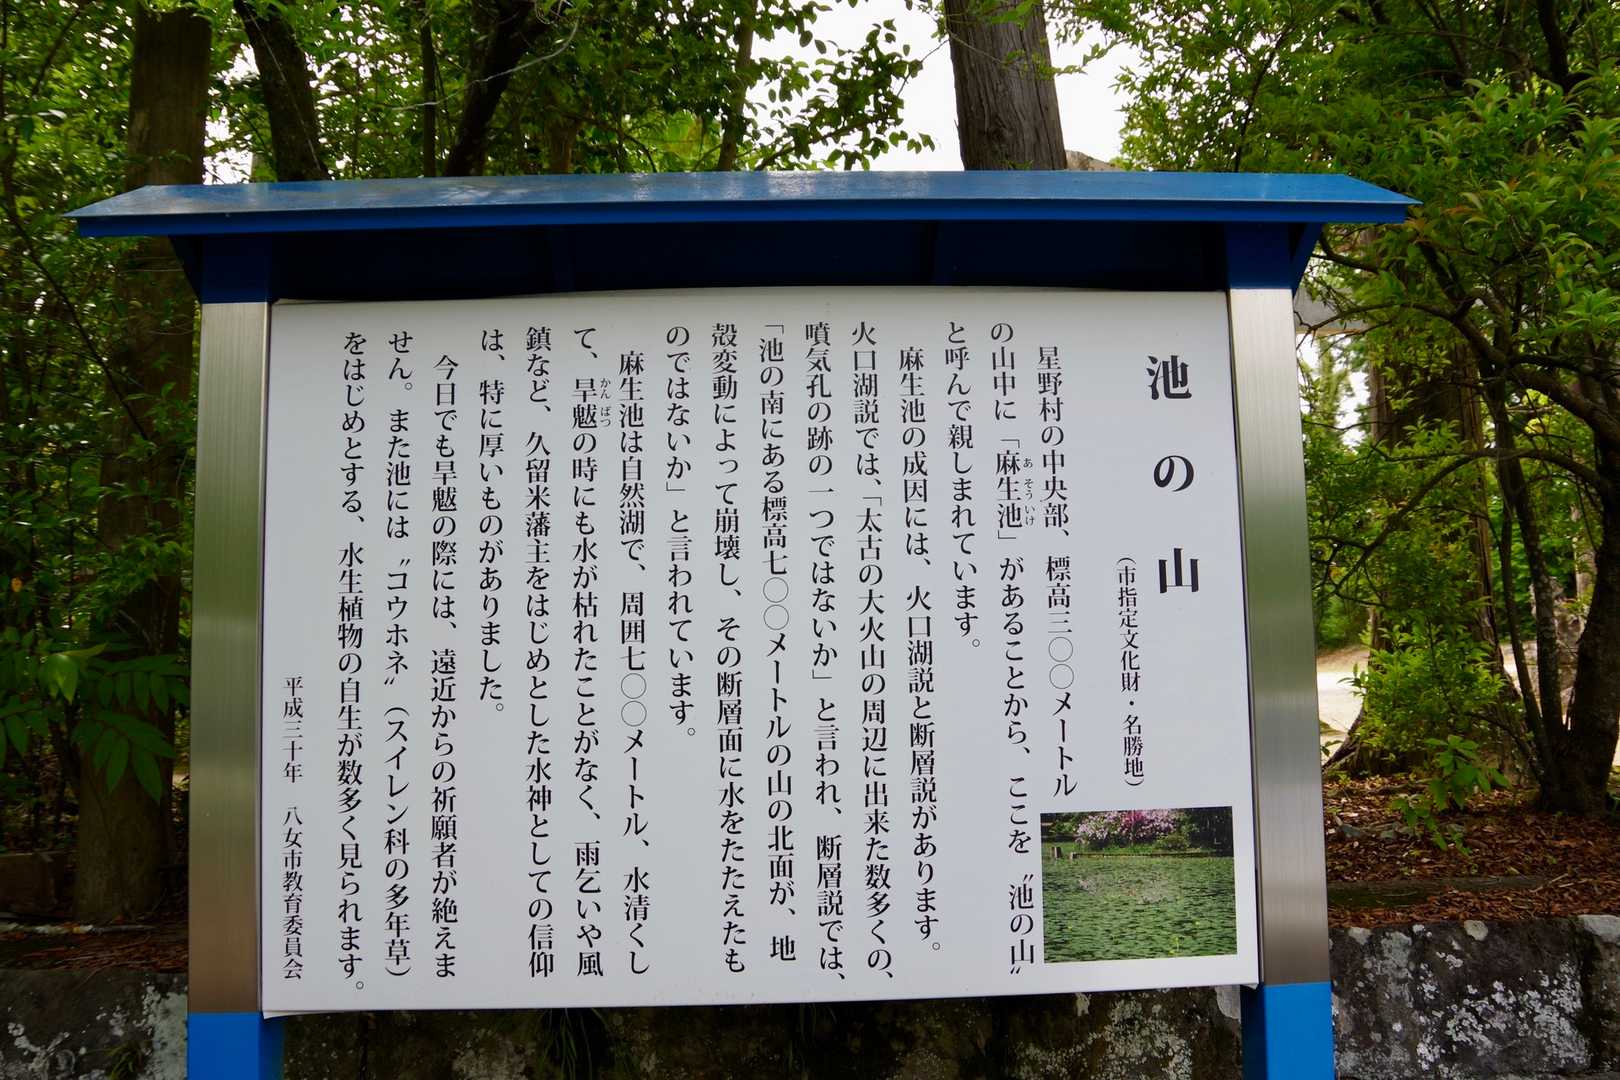 池の山
（市指定文化財・名勝地）
星野村の中央部、標高三〇〇メートル
の山中に「麻生池」があることから、ここを〝池の山〟
あそういけ
と呼んで親しまれています。
麻生池の成因には、火口湖説と断層説があります。
火口湖説では、「太古の大火山の周辺に出来た数多くの、
噴気孔の跡の一つではないか」と言われ、断層説では、
「池の南にある標高七〇〇メートルの山の北面が、地
殻変動によって崩壊し、その断層面に水をたたえたも
のではないか」と言われています。
麻生池は自然湖で、周囲七〇〇メートル、水清くし
て、旱魃の時にも水が枯れたことがなく、雨乞いや風
かんばつ
鎮など、久留米藩主をはじめとした水神としての信仰
は、特に厚いものがありました。
今日でも旱魃の際には、遠近からの祈願者が絶えま
せん。また池には〝コウホネ〟（スイレン科の多年草）
をはじめとする、水生植物の自生が数多く見られます。
平成三十年　八女市教育委員会